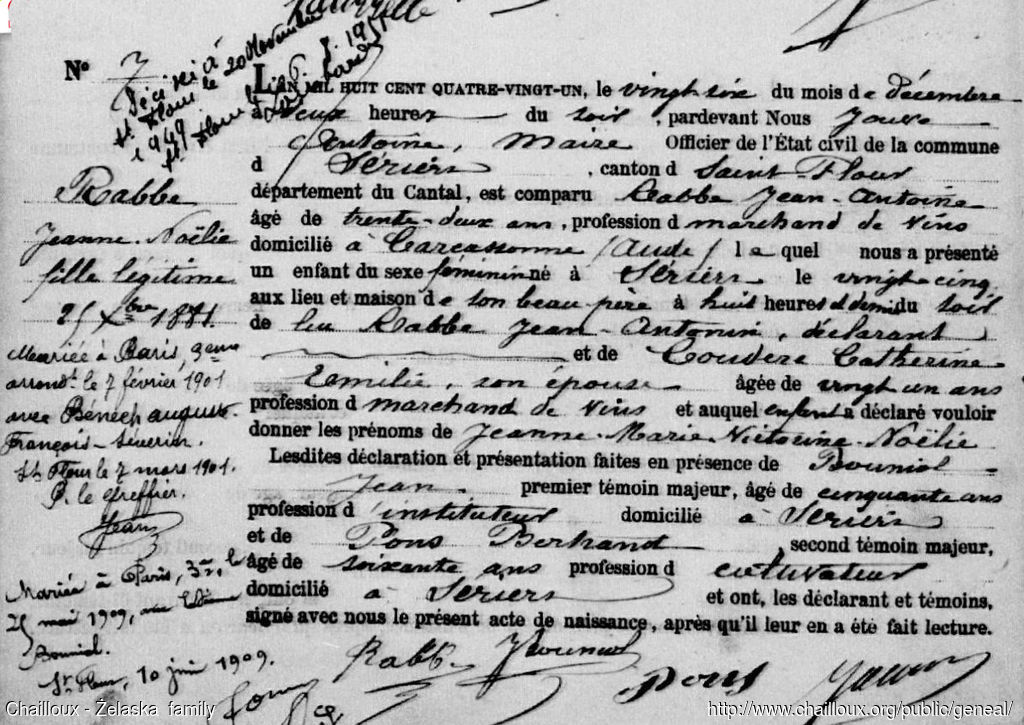 N° 7
L'AN MIL HUIT CENT QUATRE-VINGT-UN, le vingt six du mois de décembre
à deux heures du soir, pardevant Nous
Antoine, Maire Officier de l'État civil de la commune
d Sériers, canton d Saint Flour
département du Cantal, est comparu Rabbe Jean-Antoine
âgé de trente-deux ans, profession d marchand de vins
domicilié à Carcassonne (Aude) le quel nous a présenté
un enfant du sexe féminin né à Sériers le vingt cinq
aux lieu et maison de son beau père à huit heures et demi du soir
de lui Rabbe Jean-Antonin, déclarant
et de Couderc Catherine
Emilie, son épouse âgée de vingt un ans
profession d marchand de vins et auquel enfant a déclaré vouloir
donner les prénoms de Jeanne-Marie-Victorine-Noëlie
Lesdites déclaration et présentation faites en présence de Bouniol
Jean premier témoin majeur, âgé de cinquante ans
profession d'instituteur domicilié à Sériers
et de Pons Bertrand second témoin majeur,
âgé de soixante ans profession d cultivateur
domicilié à Sériers et ont, les déclarant et témoins,
signé avec nous le présent acte de naissance, après qu'il leur en a été fait lecture.
Rabbe Bouniol Pons
Décédée à
St Flour le 20 Novembre
1949
Rabbe
Jeanne-Noëlie
fille légitime
25 Xbre 1881.
Mariée à Paris, 3eme
arrondt. le 7 février 1901
avec Bénech auguste-
François-Séverin.
St Flour le 7 mars 1901.
P. le greffier.
Mariée à Paris, 3e, le
25 mai 1909, au
Bouniol.
St Flour, 10 juin 1909.
Chailloux - Żelaska family
http://www.chailloux.org/public/geneal/